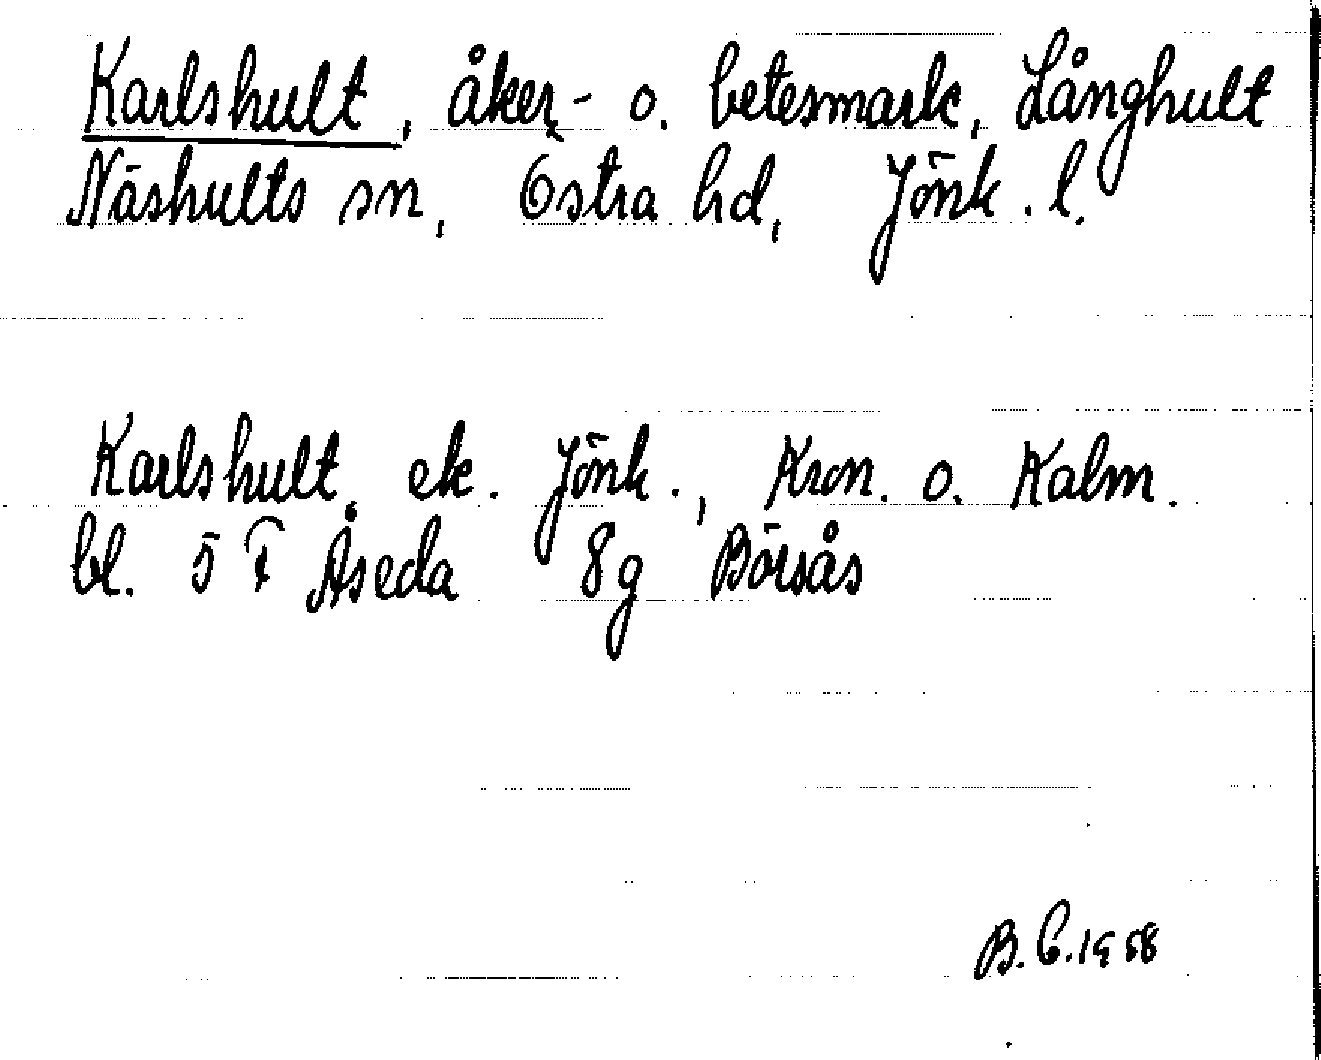 Karlshult, åker- o. betesmark, Långhult
Näshults sn, Östra hd, Jönk. l.
Karlshult, ek. Jönk., Kron. o. Kalm.
bl. 5 F Åseda 8g Börsås
B.C. 1958